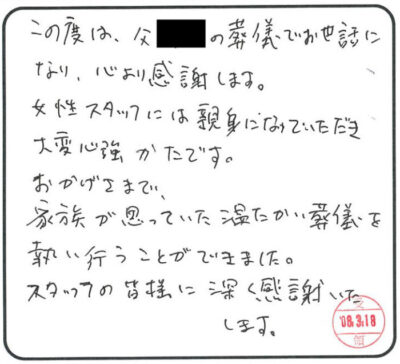 この度は、父の葬儀でお世話に
なり、心より感謝します。
女性スタッフには親身になっていただき
大変心強かたです。
おかげさまで、
家族が思っていた温たかい葬儀を
執い行うことができました。
スタッフの皆様に深く感謝いた
します。
受
'08.3.18
領